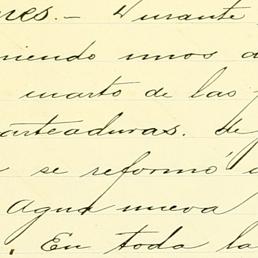 nes. - Durante
niendo unos a
cuarto de las
arteaduras. de
se reformó
Agua nueva
. En toda la